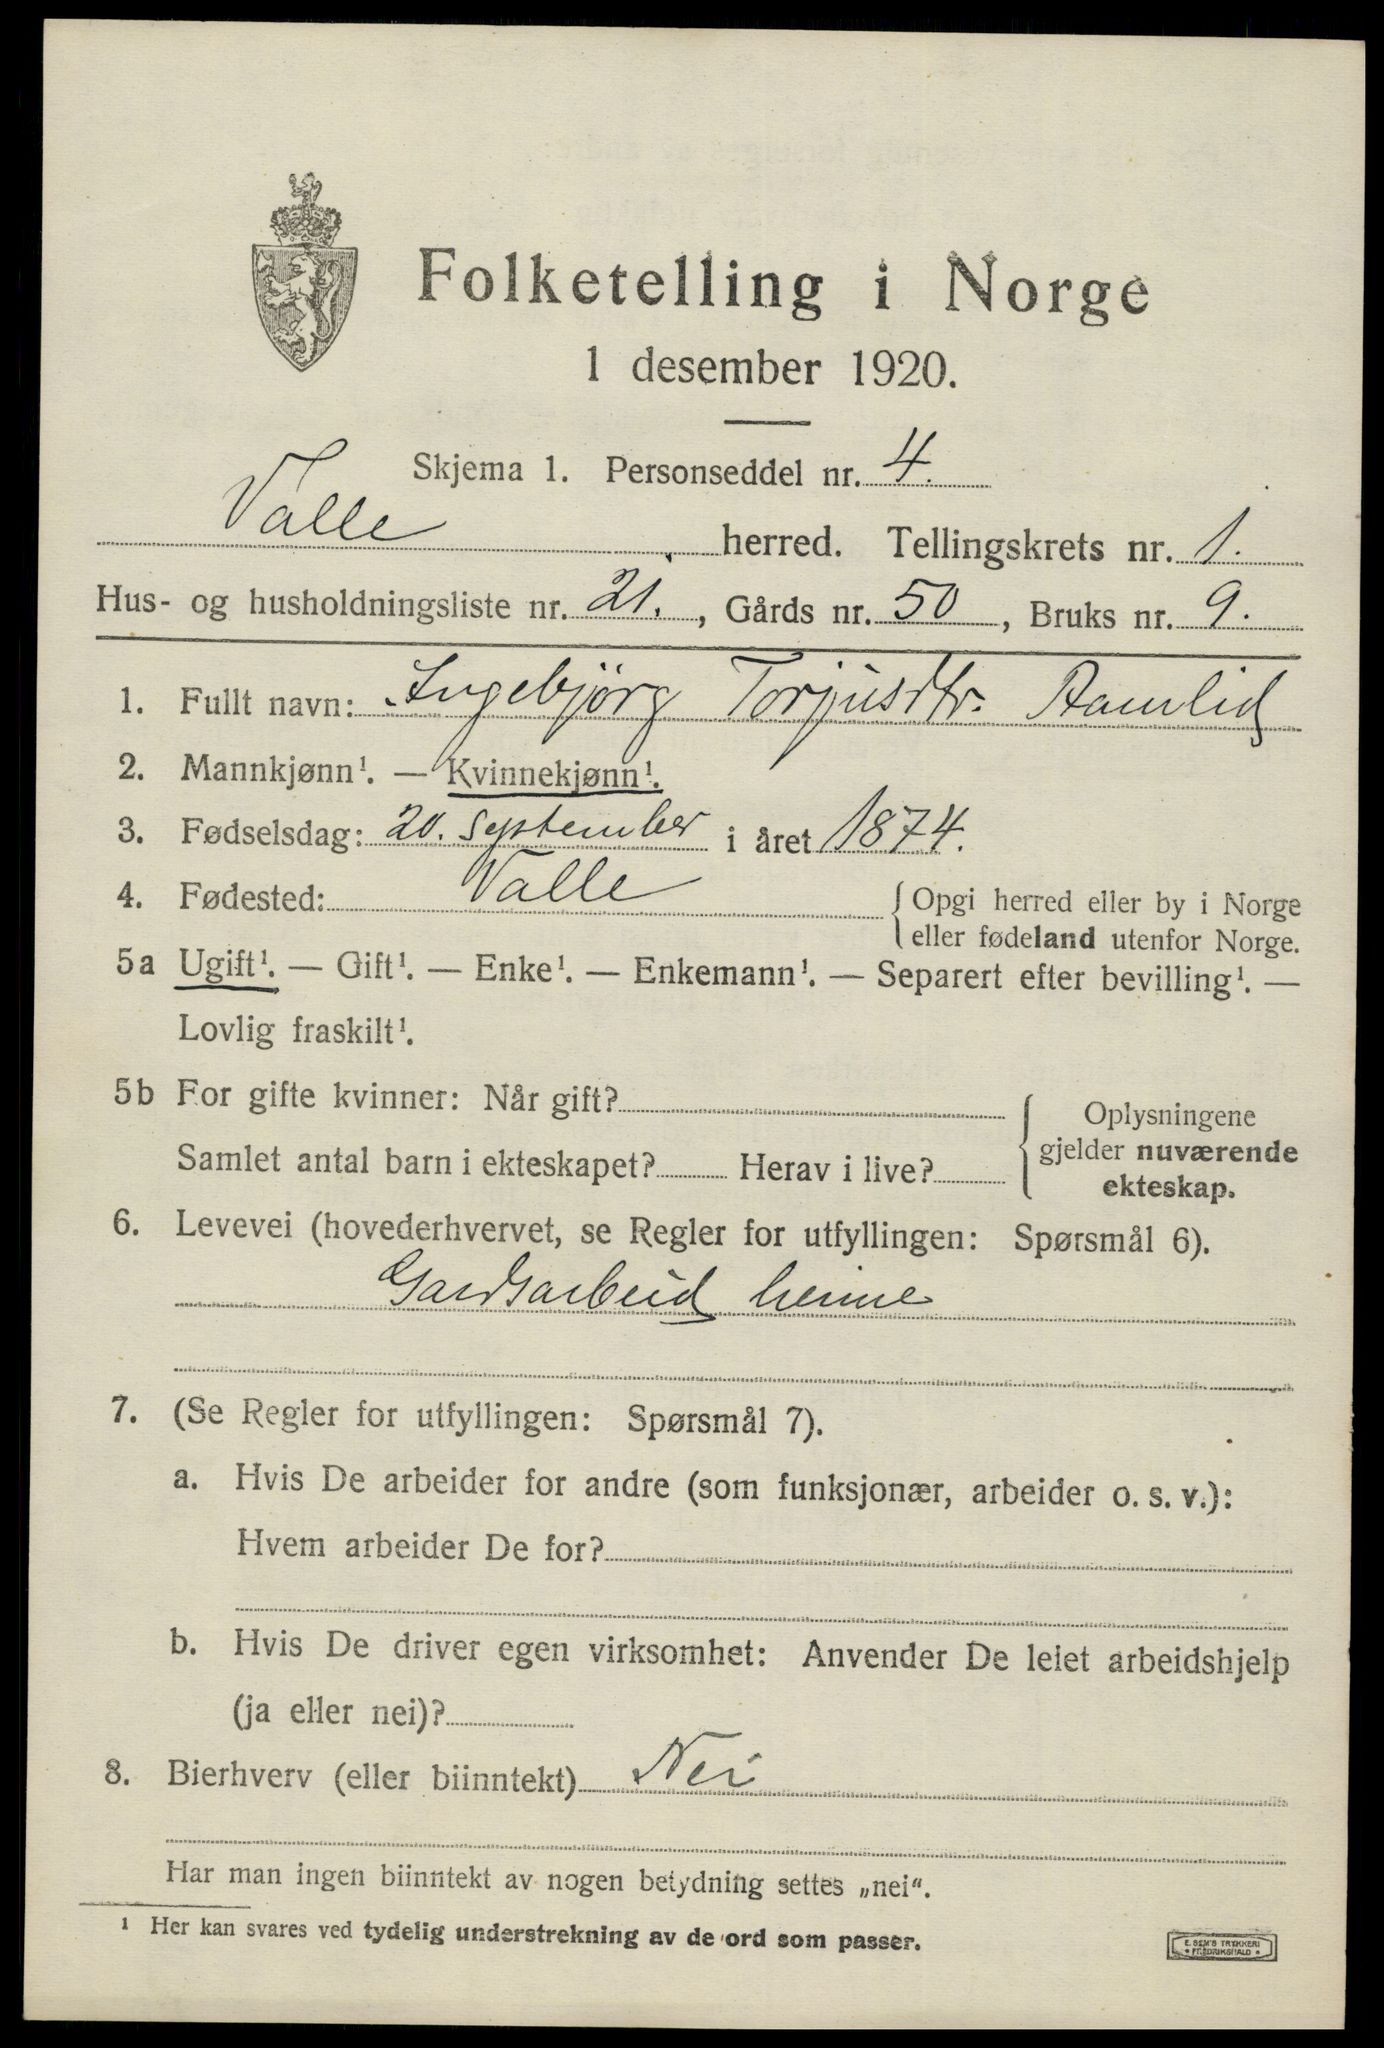 Folketelling i Norge
1 desember 1920.
Skjema 1. Personseddel nr. 4.
Valle herred. Tellingskrets nr. 1.
Hus- og husholdningsliste nr. 21., Gårds nr. 50, Bruks nr. 9.
1. Fullt navn: Ingebjörg Torjusdtr. Aamlid
2. Mannkjønn¹. — Kvinnekjønn¹.
3. Fødselsdag: 20. september i året 1874.
4. Fødested: Valle { Opgi herred eller by i Norge
eller fødeland utenfor Norge.
5a Ugift¹. — Gift¹. — Enke¹. — Enkemann¹. — Separert efter bevilling¹. —
Lovlig fraskilt¹.
5b For gifte kvinner: Når gift?
Samlet antal barn i ekteskapet? Herav i live?
{ Oplysningene
gjelder nuværende
ekteskap.
6. Levevei (hovederhvervet, se Regler for utfyllingen: Spørsmål 6).
Gardsarbeid heime
7. (Se Regler for utfyllingen: Spørsmål 7).
a. Hvis De arbeider for andre (som funksjonær, arbeider o. s. v.):
Hvem arbeider De for?
b. Hvis De driver egen virksomhet: Anvender De leiet arbeidshjelp
(ja eller nei)?
8. Bierhverv (eller biinntekt) Nei
Har man ingen biinntekt av nogen betydning settes „nei“.
¹ Her kan svares ved tydelig understrekning av de ord som passer.
E. SEM'S TRYKKERI
• FREDRIKSHALD •